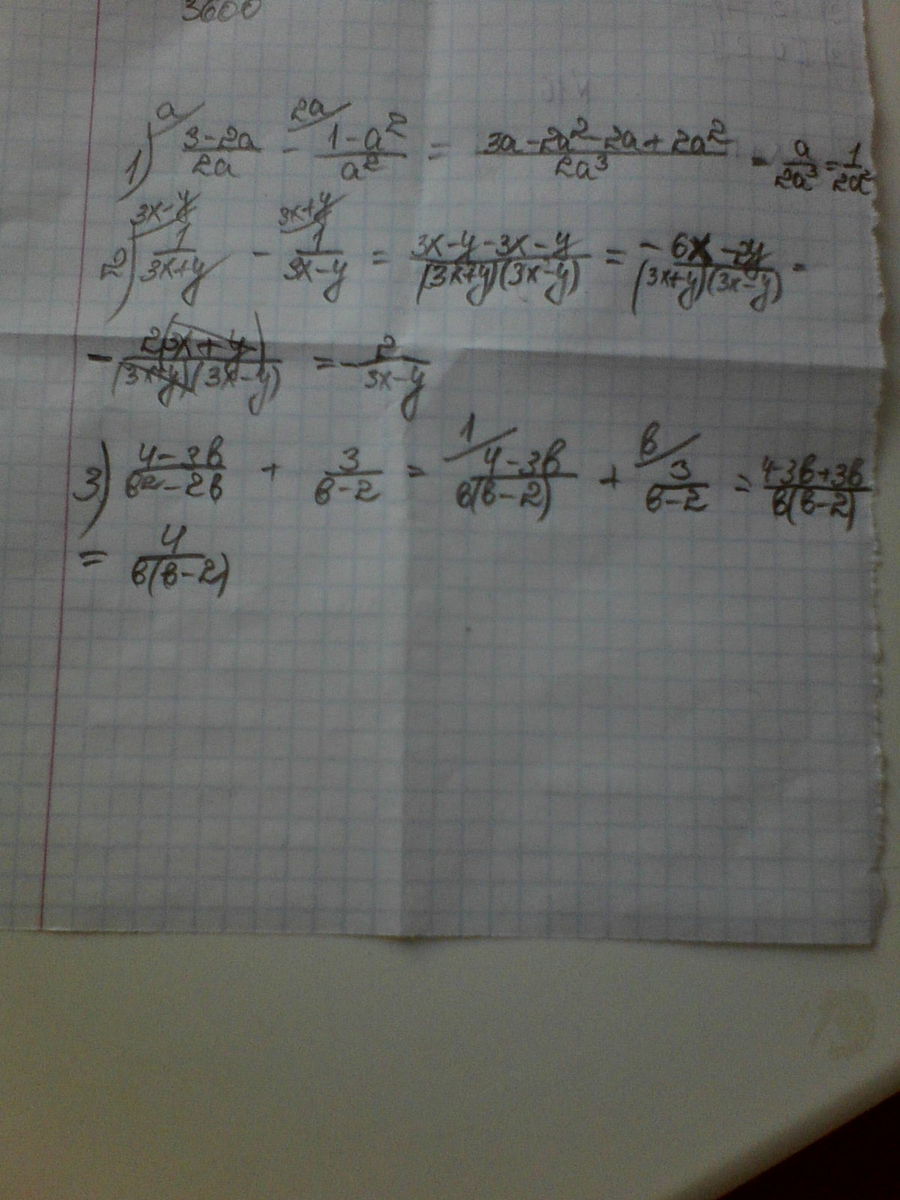 3600
1) a/ (3-2a)/(2a) - 2a/ (1-a²)/(a²) = (3a-2a²-2a+2a²)/(2a³) = a/(2a³) = 1/(2a²)
2) 3x-y/ 1/(3x+y) - 3x+y/ 1/(3x-y) = (3x-y-3x-y)/((3x+y)(3x-y)) = (-6x-2y)/((3x+y)(3x-y)) =
- 2(3x+y)/((3x+y)(3x-y)) = - 2/(3x-y)
3) (4-3b)/(b²-2b) + 3/(b-2) = 1/ (4-3b)/(b(b-2)) + b/ 3/(b-2) = (4-3b+3b)/(b(b-2))
= 4/(b(b-2))